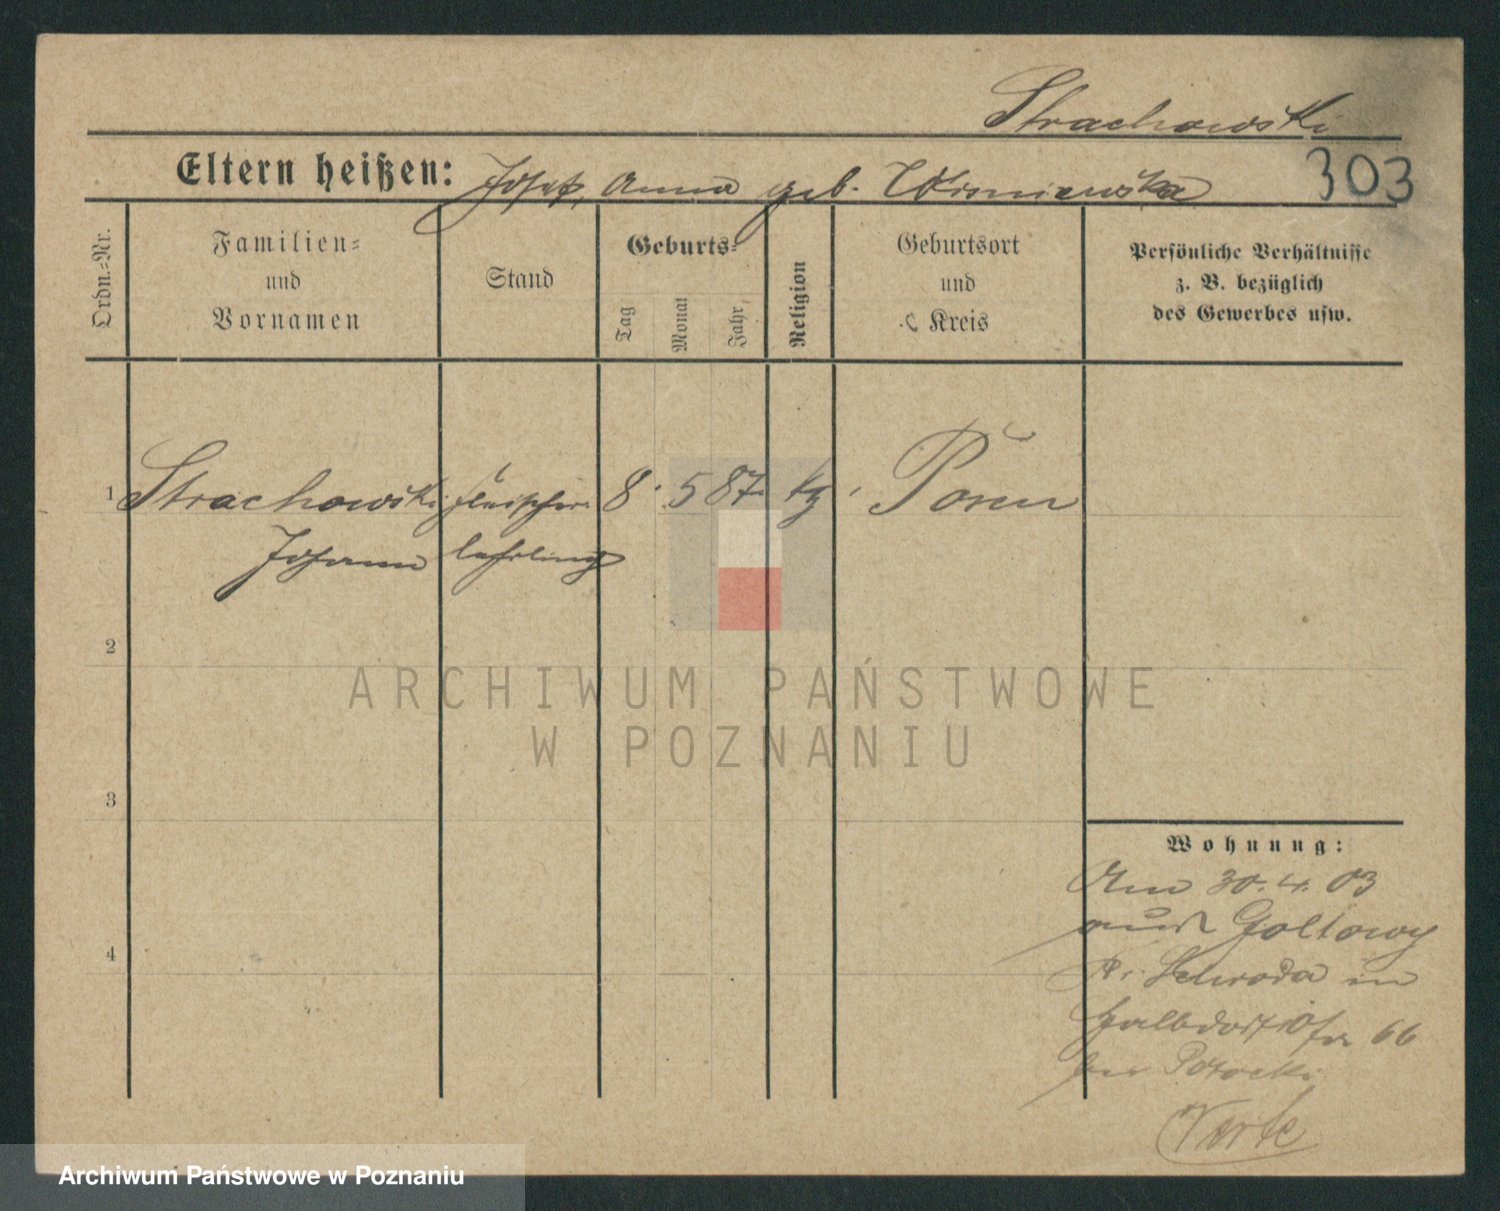 Strachowski
Eltern heißen: Josef, Anna geb. Wisniewska 303
Ordn.=Nr.
Familien=
und
Vornamen
Stand
Geburts=
Tag
Monat
Jahr
Religion
Geburtsort
und
Kreis
Persönliche Verhältnisse
z. B. bezüglich
des Gewerbes usw.
1 Strachowski Fleischer 8. 5 87 kg Posen
Johann lehrling
2
3
4
Wohnung:
Am 30. 4. 03
aus Goltowy
Kr. Schroda in
Halbdorfstr 66
bei Potocki
Verte
ARCHIWUM PAŃSTWOWE
W POZNANIU
Archiwum Państwowe w Poznaniu